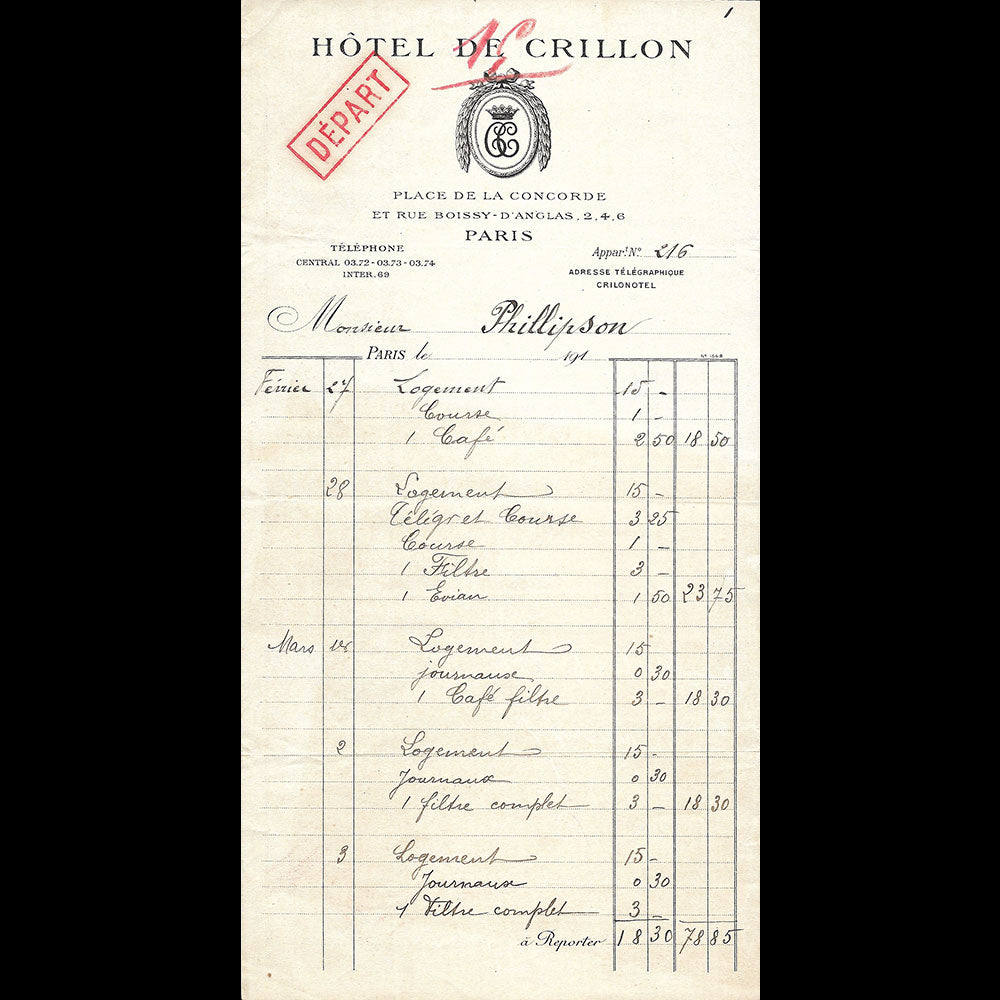 1
HÔTEL DE CRILLON
DÉPART
PLACE DE LA CONCORDE
ET RUE BOISSY-D'ANGLAS, 2, 4, 6
PARIS
TÉLÉPHONE
CENTRAL 03.72 - 03.73 - 03.74
INTER. 69
Appart. N° 216
ADRESSE TÉLÉGRAPHIQUE
CRILONOTEL
Monsieur Phillipson
PARIS le 191
Février 27 Logement 15 -
Course 1 -
1 Café 2 50 18 50
28 Logement 15 -
Télégr et Course 3 25
Course 1 -
1 Filtre 3 -
1 Evian 1 50 23 75
Mars 1er Logement 15
journaux 0 30
1 Café filtre 3 - 18 30
2 Logement 15 -
Journaux 0 30
1 filtre complet 3 - 18 30
3 Logement 15 -
Journaux 0 30
1 Filtre complet 3 -
à Reporter 18 30 78 85